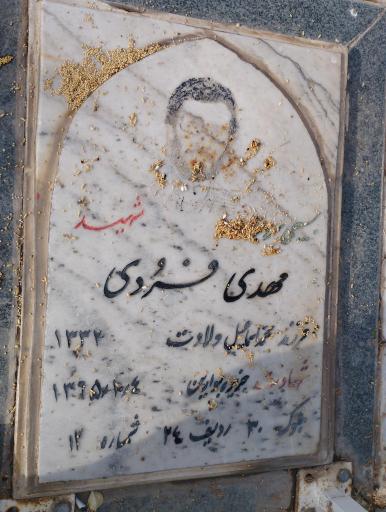 شهید
مهدی فرودی
فرزند محمداسماعیل ولادت ۱۳۳۲
شهادت ۱۳۶۵/۲/۴
بلوک ۳۰ ردیف ۲۴ شماره ۱۲